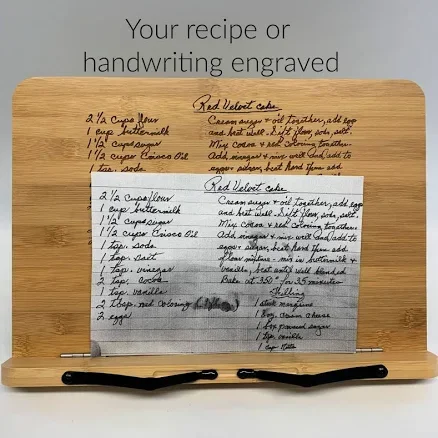 Your recipe or
handwriting engraved
Red Velvet cake
2 1/2 cups flour
1 cup buttermilk
1 1/2 cups sugar
1 1/2 cups Crisco Oil
1 tsp. soda
Cream sugar & oil together, add egg
and beat well. Sift flour, soda, salt.
Mix cocoa & red coloring together.
Add vinegar & mix well and add to
eggs & sugar, beat hard then add
Red Velvet cake
2 1/2 cups flour
1 cup buttermilk
1 1/2 cups sugar
1 1/2 cups Crisco Oil
1 tsp. soda
1 tsp. salt
1 tsp. vinegar
2 tsp. cocoa
1 tsp. vanilla
2 tbsp. red coloring
2 eggs
Cream sugar & oil together, add egg
and beat well. Sift flour, soda, salt.
Mix cocoa & red coloring together.
Add vinegar & mix well and add to
eggs & sugar, beat hard then add
flour mixture - mix in buttermilk &
vanilla, beat until well blended
Bake at 350° for 35 minutes
1 stick margarine
1 8 oz. cream cheese
1 box powered sugar
1 tsp. vanilla
1 cup Nuts